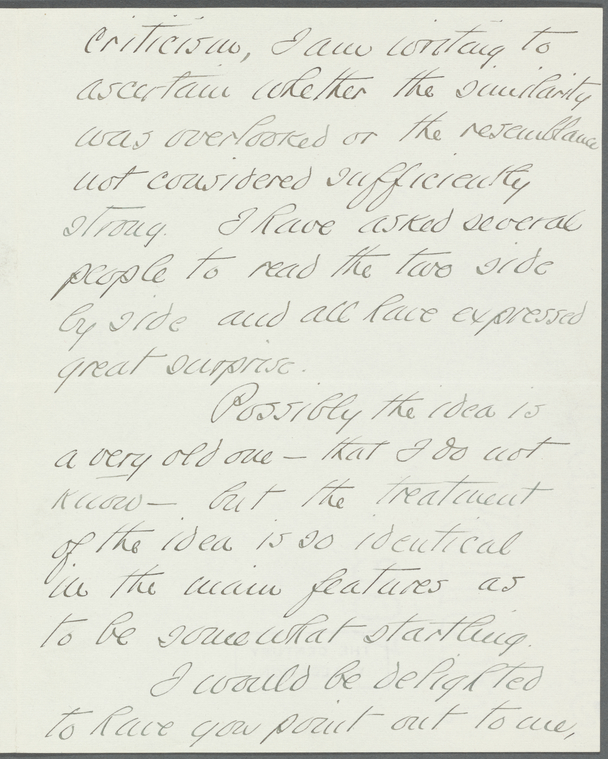 criticism, I am writing to
ascertain whether the similarity
was overlooked or the resemblance
not considered sufficiently
strong. I have asked several
people to read the two side
by side and all have expressed
great surprise.
Possibly the idea is
a very old one — that I do not
know — but the treatment
of the idea is so identical
in the main features as
to be somewhat startling.
I would be delighted
to have you point out to me,